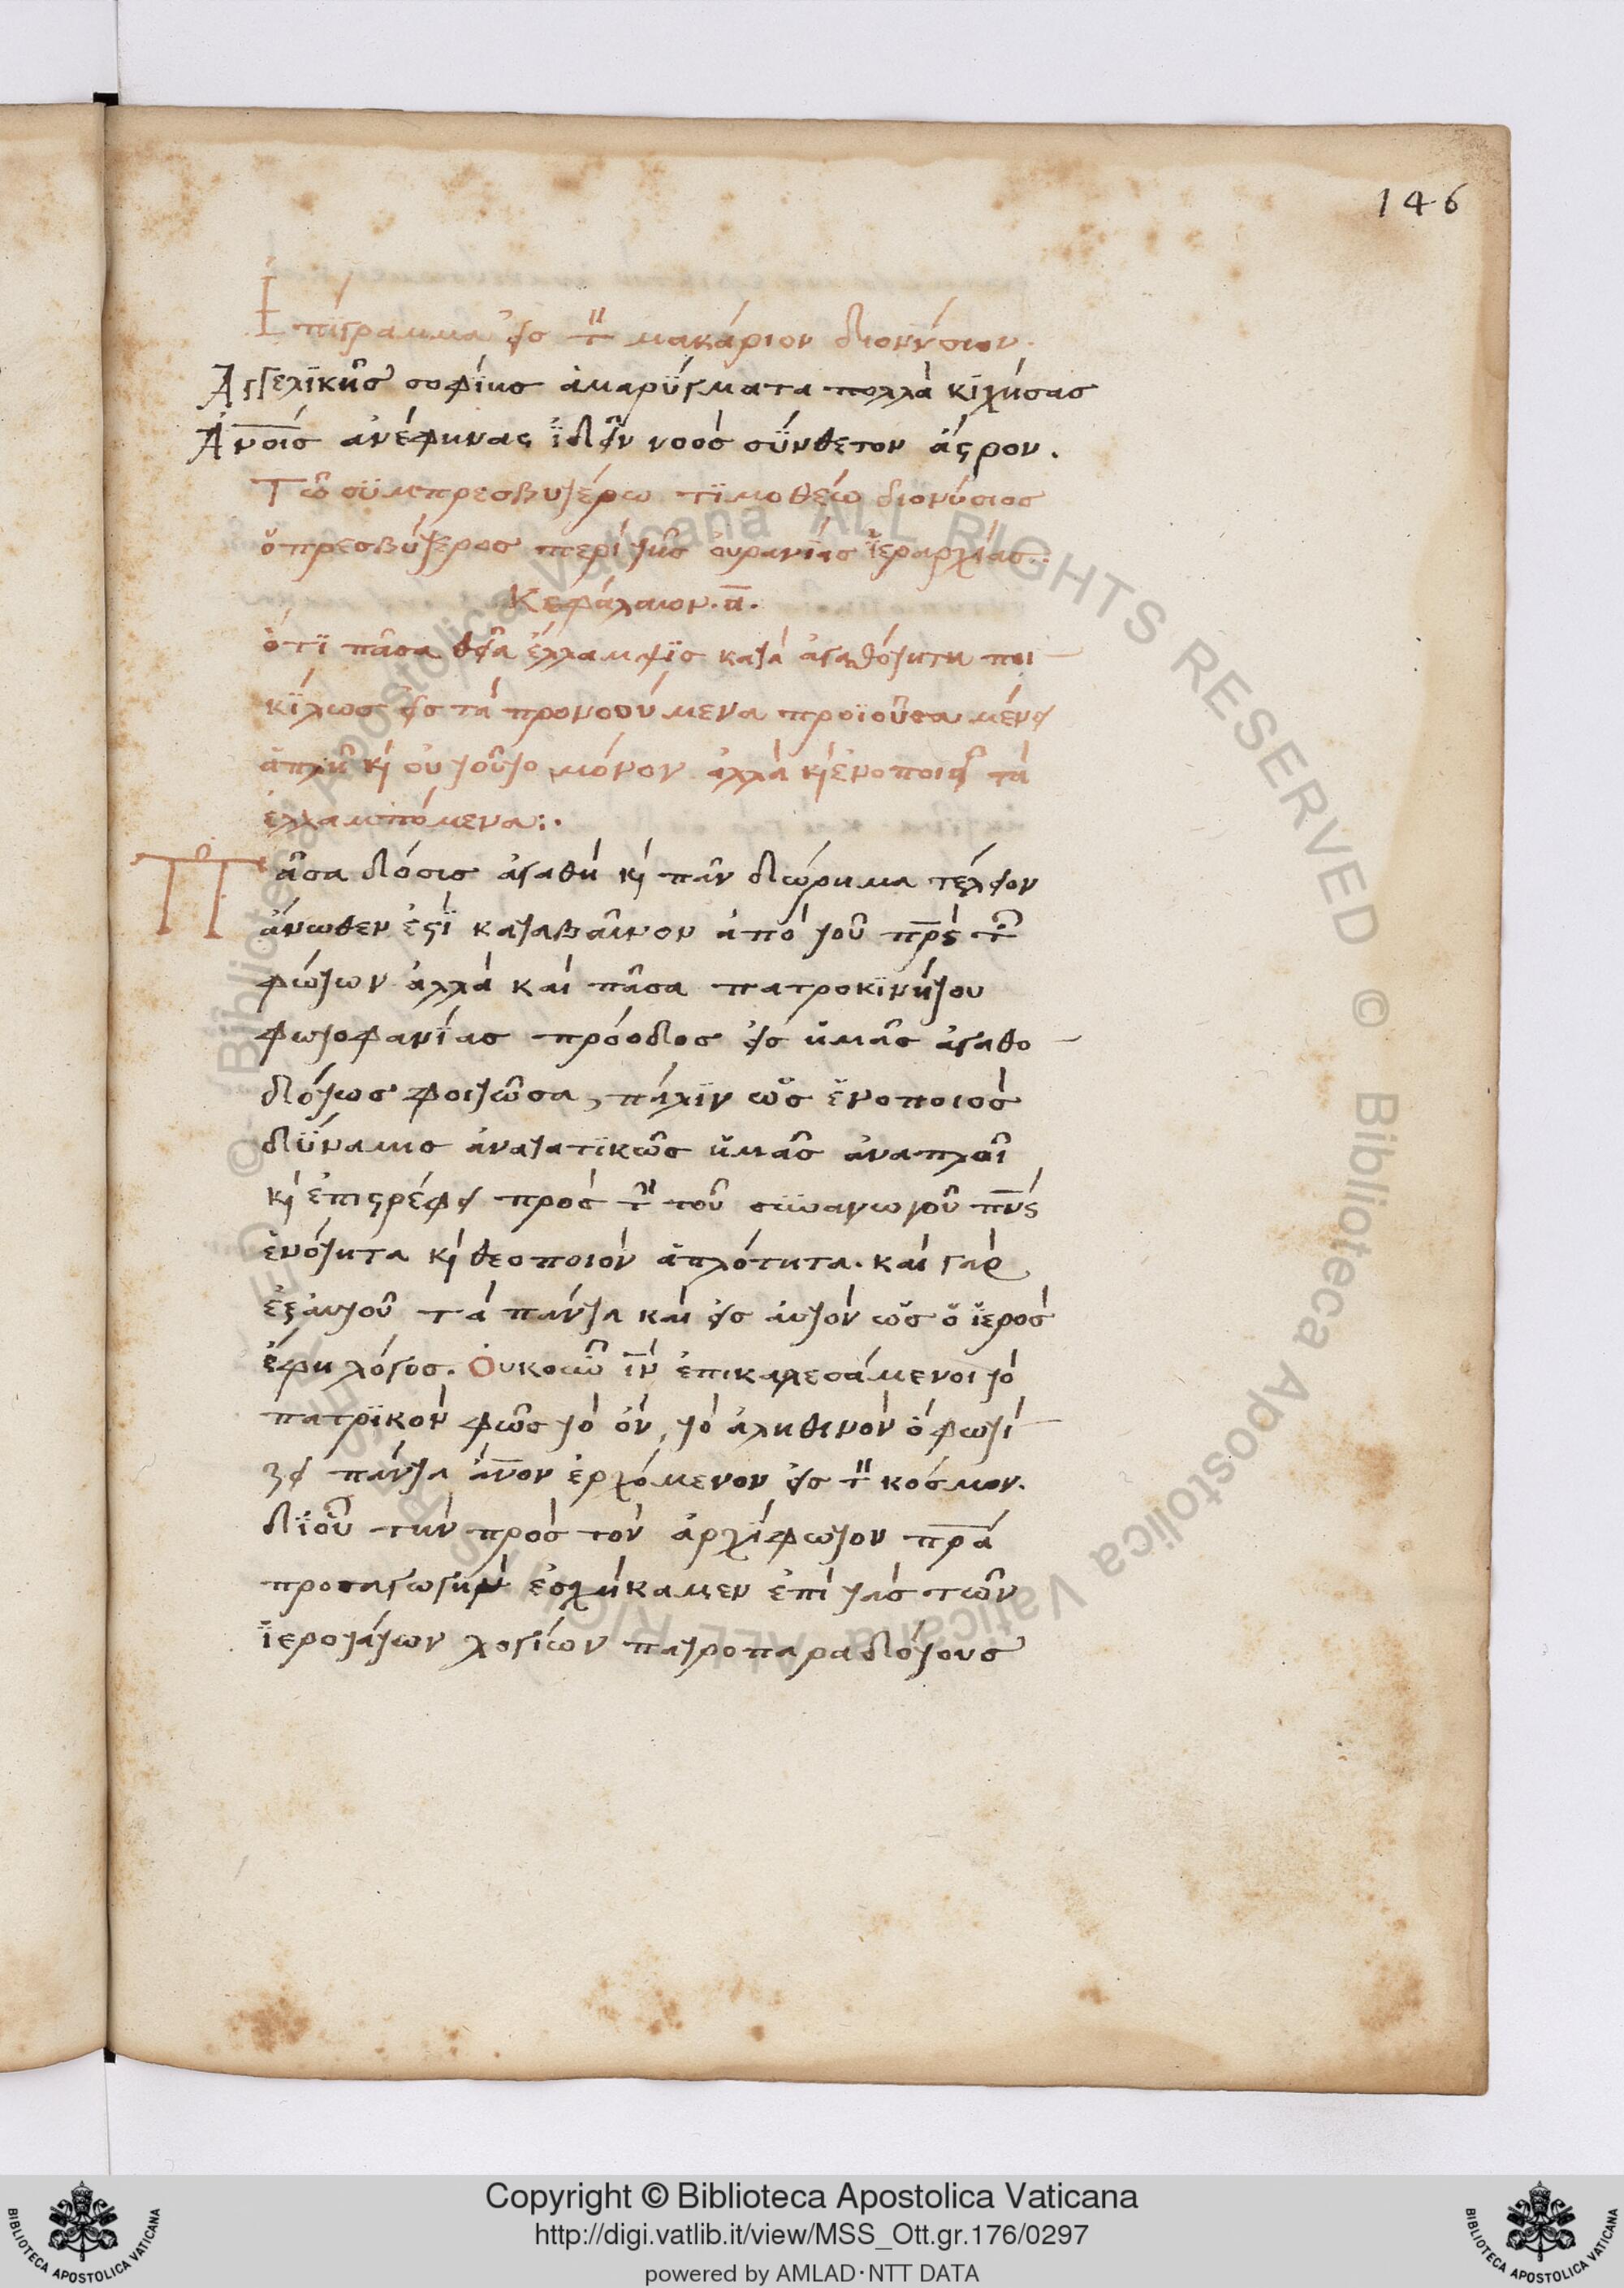 146
Ἐπίγραμμα εἰς τὸν μακάριον διονύσιον.
Ἀγγελϊκῆς σοφίης ἀμαρύγματα πολλὰ κϊχήσας
Ἀν̅οις ἀνέφηνας ἰδεῖν νοὸς σύνθετον ἄστρον.
Τῶ συμπρεσβυτέρω τϊμοθέω διονύσιος
ὁ πρεσβύτερος περὶ τῆς οὐρανίας ἱεραρχίας:
Κεφάλαιον. α̅.
ὅτι πᾶσα θεία ἔλλαμψϊς κατὰ ἀγαθότητα ποι
κίλως εἰς τὰ προνοούμενα προϊοῦσα μένει
ἁπλῆ κὶ οὐ τοῦτο μόνον ἀλλὰ κὶ ἑνοποιεῖ τὰ
ἐλλαμπόμενα:.
Πᾶσα δόσις ἀγαθὴ κὶ πᾶν δώρημα τέλειον
ἄνωθεν ἐστὶ καταβαῖνον ἀπὸ τοῦ π̅ρ̅ς τῶν
φώτων ἀλλὰ καὶ πᾶσα πατροκϊνήτου
φωτοφανίας πρόοδος εἰς ἡμᾶς ἀγαθο
δότως φοιτῶσα, πάλϊν ὡς ἑνοποιὸς
δύναμις ἀνατατϊκῶς ἡμᾶς ἀναπλοῖ
κὶ ἐπιστρέφει πρὸς τὴν τοῦ συναγωγοῦ π̅ν̅ς
ἑνότητα κὶ θεοποιὸν ἁπλότητα. καὶ γὰρ
ἐξ αὐτοῦ τὰ πάντα καὶ εἰς αὐτὸν ὡς ὁ ἱερὸς
ἔφη λόγος. Οὐκοῦν ι̅ν̅ ἐπικαλεσάμενοι τὸ
πατρϊκὸν φῶς τὸ ὂν, τὸ ἀληθινὸν ὃ φωτί
ζει πάντα ἄν̅ον ἐρχόμενον εἰς τὸν κόσμον.
δϊ οὗ τὴν πρὸς τὸν ἀρχίφωτον π̅ρ̅α
προσαγωγὴν ἐσχήκαμεν ἐπὶ τὰς τῶν
ἱεροτάτων λογίων πατροπαραδότους
Copyright © Biblioteca Apostolica Vaticana
http://digi.vatlib.it/view/MSS_Ott.gr.176/0297
powered by AMLAD·NTT DATA
BIBLIOTECA APOSTOLICA VATICANA
BIBLIOTECA APOSTOLICA VATICANA